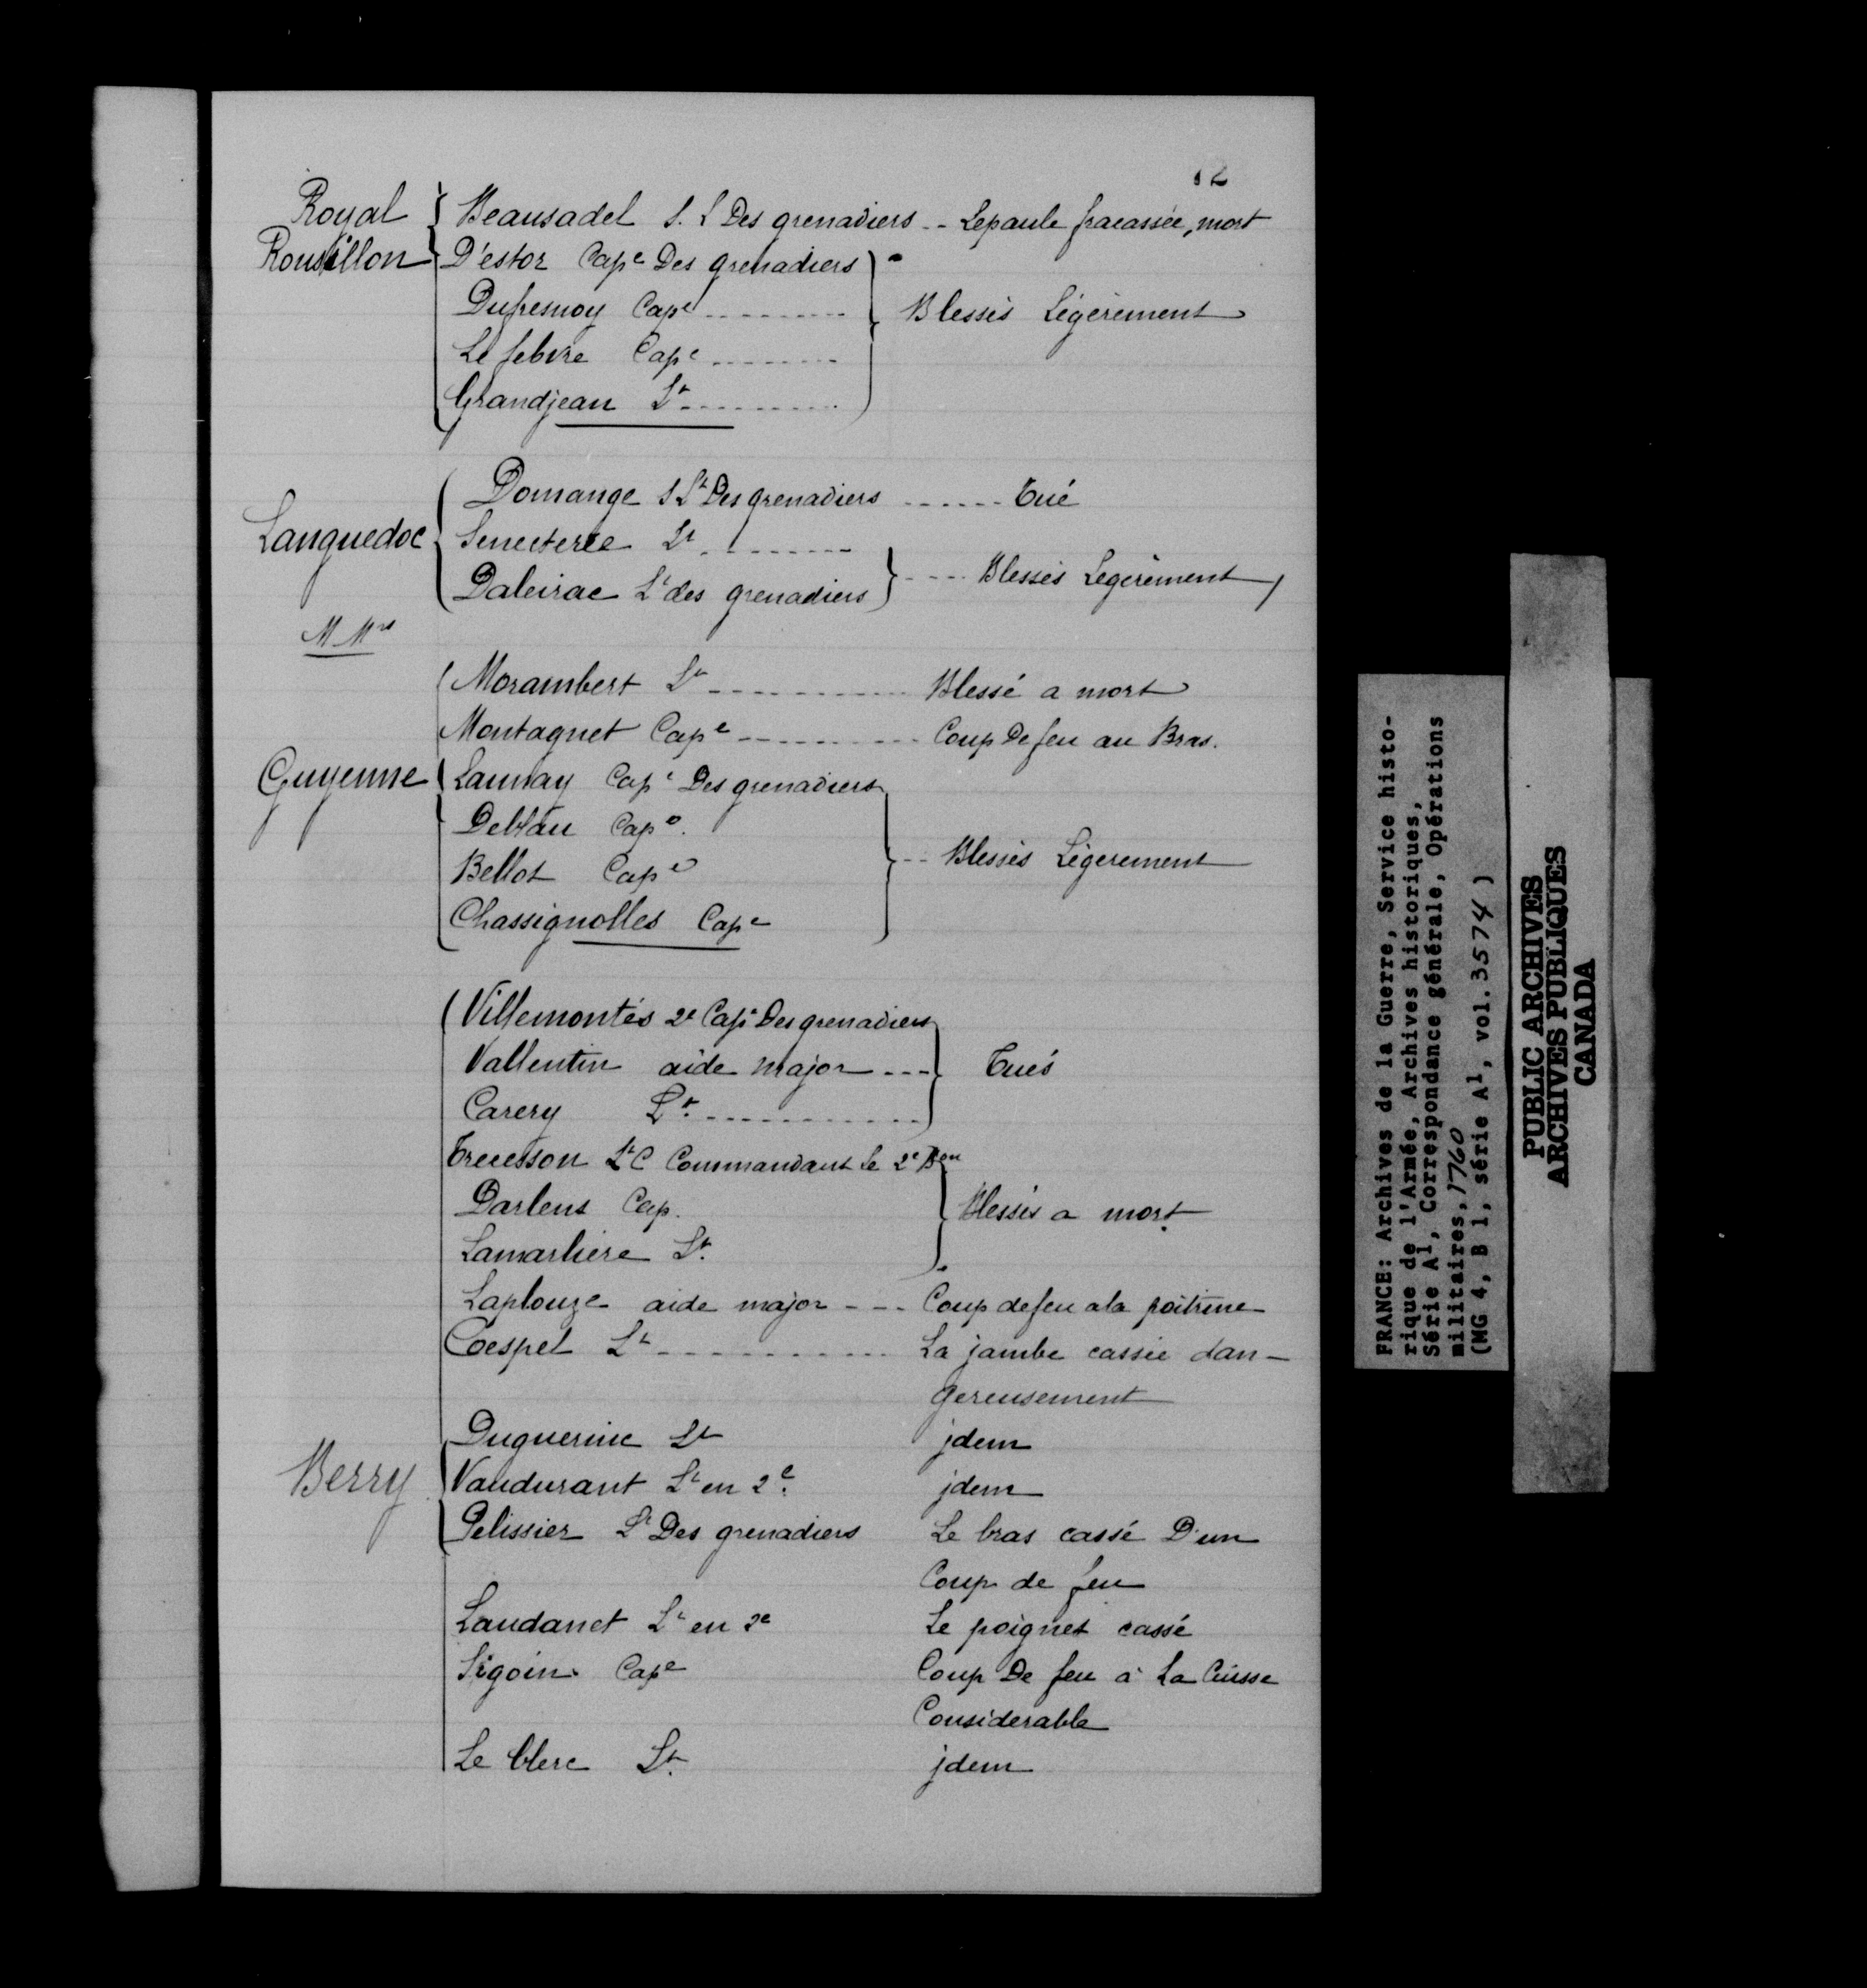 12
Royal Beausadel S. L Des grenadiers -- Lepaule fracassée, mort
Rousillon D'estor Cap.e Des grenadiers
Dufresnoy Cap.e --------- Blessés Légèrement
Le febvre Cap.e --------
Grandjean Lt ----------
Domange S Lt Des grenadiers ------ Tué
Languedoc Senecterre Lt ---------
Daleirac Lt des grenadiers ---- Blessés Legèrement
M Mrs
Morambert Lt ------------ Blessé a mort
Montaguet Cap.e ---------- Coup De feu au Bras.
Guyenne Launay Cap.e Des grenadiers
Deblau Cap.e
Bellot Cap.e -- Blessés Légerement
Chassignolles Cap.e
Villemontés 2e Cap.e Des grenadiers
Vallentin aide major --- Tués
Carery Lt. ------------
Trecesson Lt C Commandant le 2e Bon
Darlens Cap. Blessés a mort
Lamarliere Lt.
Laplouze aide major --- Coup de feu a la poitrine
Coespel Lt ------------ La jambe cassée dan-
gereusement
Duguerme Lt jdem
Berry Vaudurant Lt en 2e. jdem
Pelissier Lt Des grenadiers Le bras cassé D'un
Coup de feu
Laudanet Lt en 2e Le poignet cassé
Sigoin Cap.e Coup De feu à La Cuisse
Considerable
Le Clerc Lt. jdem
FRANCE: Archives de la Guerre, Service histo-
rique de l'Armée, Archives historiques,
Série A1, Correspondance générale, Opérations
militaires, 1760
(MG 4, B 1, série A1, vol. 3574)
PUBLIC ARCHIVES
ARCHIVES PUBLIQUES
CANADA